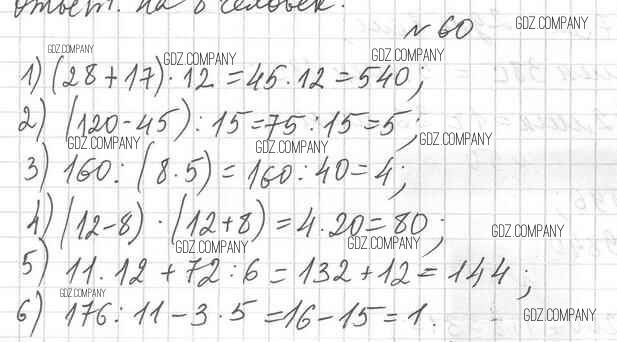 Ответ: на 8 человек.
№ 60
GDZ.COMPANY
GDZ.COMPANY
GDZ.COMPANY
GDZ.COMPANY
1) (28+17)·12=45·12=540;
2) (120-45):15=75:15=5;
GDZ.COMPANY
GDZ.COMPANY
GDZ.COMPANY
3) 160:(8·5)=160:40=4;
4) (12-8)·(12+8)=4·20=80;
GDZ.COMPANY
GDZ.COMPANY
GDZ.COMPANY
5) 11·12+72:6=132+12=144;
GDZ.COMPANY
6) 176:11-3·5=16-15=1.
GDZ.COMPANY